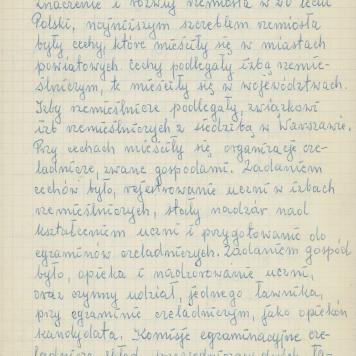 znaczenie i rozwój rzemiosła w 20 leciu
Polski, najniższym szczeblem rzemiosła
były cechy, które mieściły się w miastach
powiatowych. Cechy podlegały izbą rzemie-
ślniczym, te mieściły się w województwach.
Izby rzemieślnicze podlegały, związkowi
izb rzemieślniczych z siedzibą w Warszawie.
Przy cechach mieściły się organizacje cze-
ladnicze, zwane gospodami. Zadaniem
cechów było, rejestrowanie uczni w izbach
rzemieślniczych, stały nadzór nad
kształceniem uczni i przygotowanie do
egzaminów czeladniczych. Zadaniem gospód
było, opieka i nadzorowanie uczni,
oraz czynny udział, jednego ławnika,
przy egzaminie czeladniczym, jako opiekón
kandydata. Komisje egzaminacyjne cze-